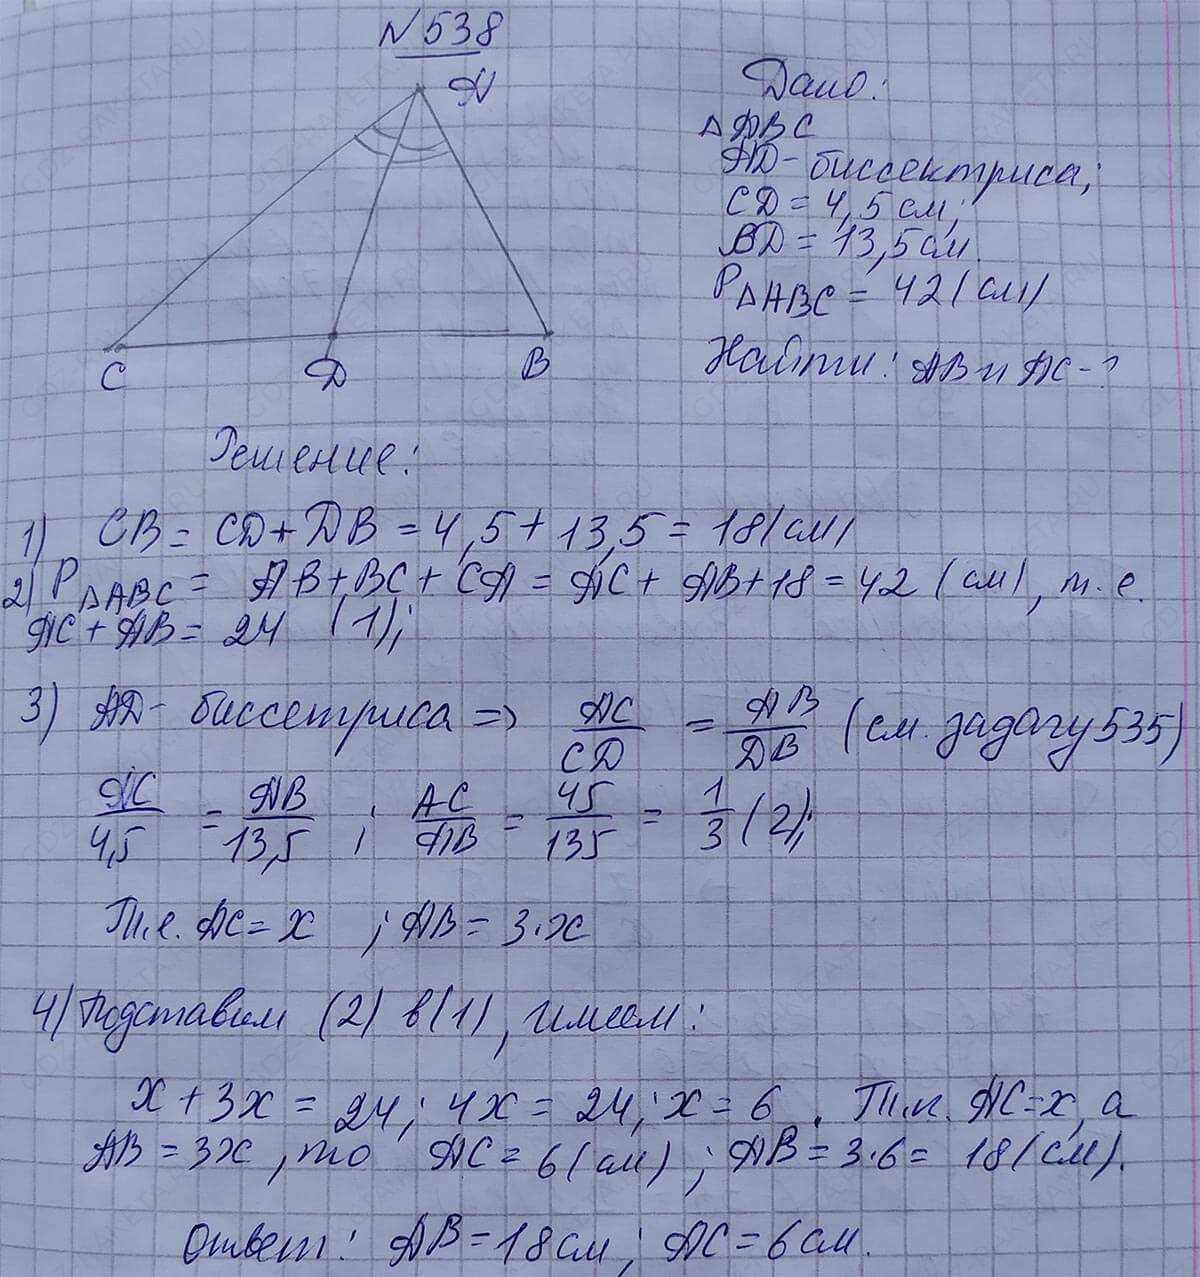 N538
A
C
D
B
Дано:
△ABC
AD - биссектриса;
CD = 4,5 см;
BD = 13,5 см.
P△ABC = 42 (см)
Найти: AB и AC - ?
Решение:
1) CB = CD + DB = 4,5 + 13,5 = 18 (см)
2) P△ABC = AB + BC + CA = AC + AB + 18 = 42 (см), т.е.
AC + AB = 24 (1);
3) AD - биссетриса => AC/CD = AB/DB (см. задачу 535)
AC/4,5 = AB/13,5 ; AC/AB = 45/135 = 1/3 (2);
Т.е. AC = x ; AB = 3·x
4) Подставим (2) в (1), имеем:
x + 3x = 24; 4x = 24; x = 6. Т.к. AC = x, а
AB = 3x, то AC = 6 (см); AB = 3·6 = 18 (см).
Ответ: AB = 18 см; AC = 6 см.